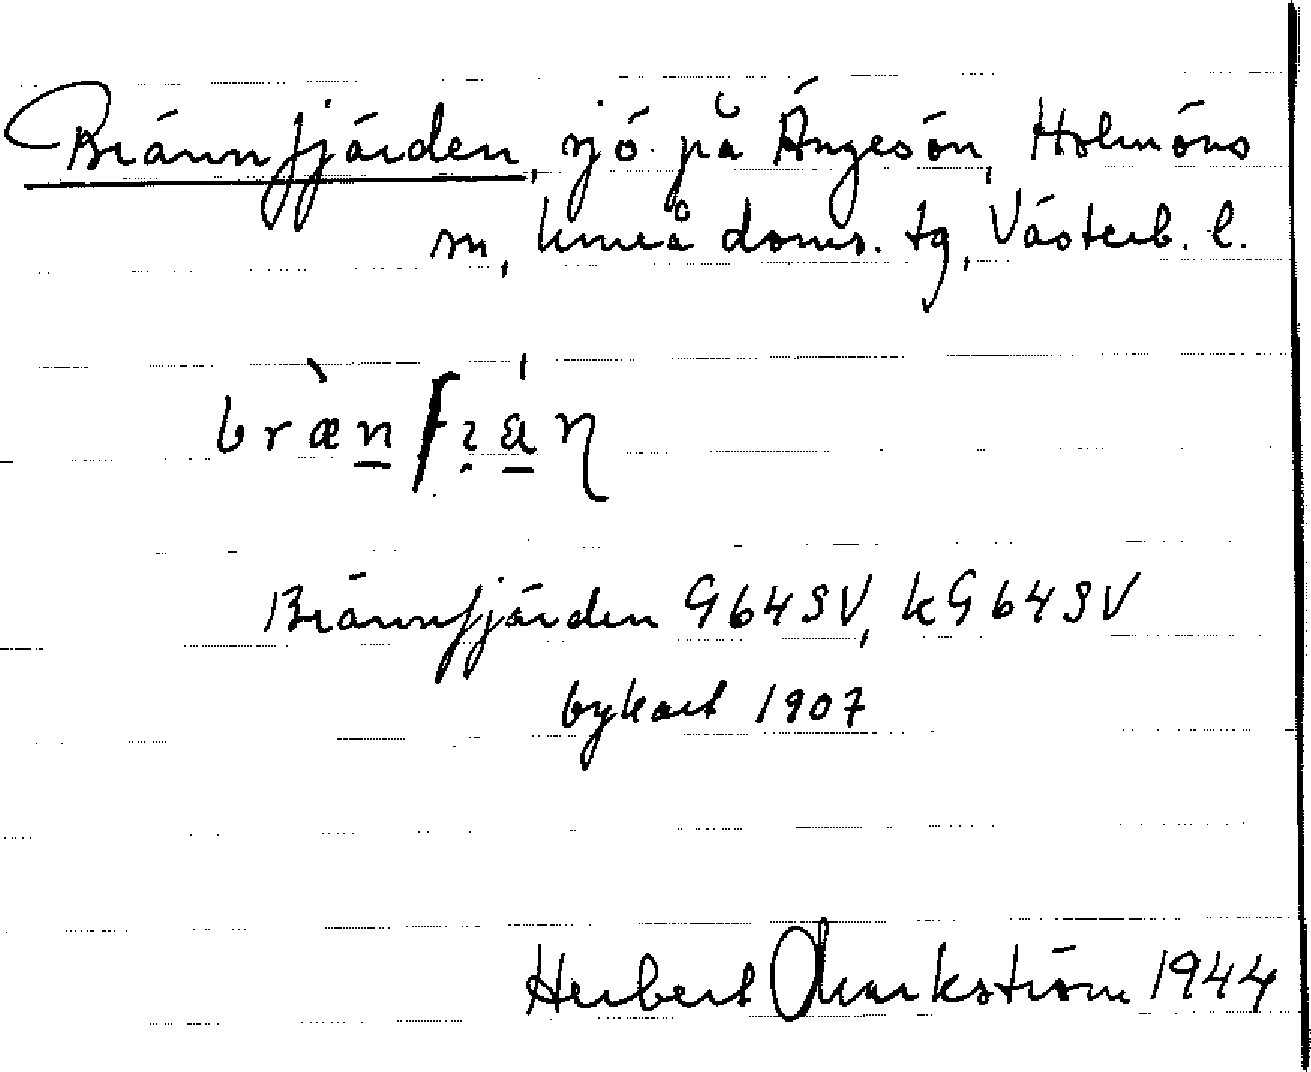 Brännfjärden, sjö på Ängesön, Holmöns
sn, Umeå doms. tg, Västerb. l.
Brännfjärden G64SV, kG64SV
bykart 1907
Herbert Markström 1944